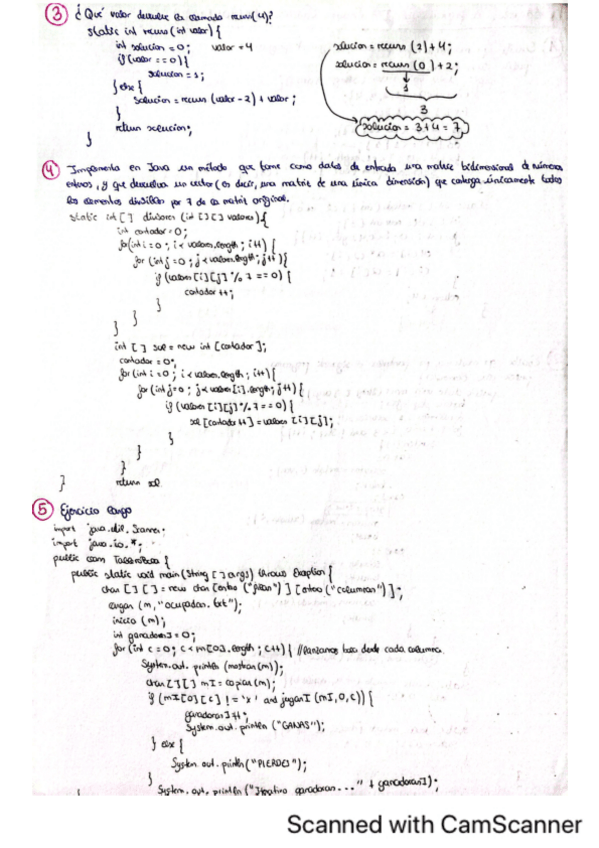 3 ¿Qué valor devuelve la llamada recurs(4)?
static int recurs (int valor) {
int solucion = 0; valor = 4
if (valor == 0) {
solucion = 1;
} else {
solucion = recurs (valor - 2) + valor;
}
return solucion;
}
solucion = recurs (2) + 4;
solucion = recurs (0) + 2;
1
3
solucion = 3 + 4 = 7
4 Implementa en Java un método que tome como datos de entrada una matriz bidimensional de números
enteros, y que devuelva un vector (es decir, una matriz de una única dimensión) que contenga únicamente todos
los elementos divisibles por 7 de la matriz original.
static int [ ] divisores (int [ ] [ ] valores) {
int contador = 0;
for (int i = 0; i < valores.length; i++) {
for (int j = 0; j < valores.length; j++) {
if (valores [i] [j] % 7 == 0) {
contador ++;
}
}
}
int [ ] sol = new int [contador];
contador = 0;
for (int i = 0; i < valores.length; i++) {
for (int j = 0; j < valores [i].length; j++) {
if (valores [i] [j] % 7 == 0) {
sol [contador ++] = valores [i] [j];
}
}
}
} return sol
5 Ejercicio largo
import java.util.Scanner;
import java.io.*;
public class {
public static void main (String [ ] args) throws Exception {
char [ ] [ ] = new char [entero ("filas")] [entero ("columnas")];
cargar (m, "ocupadas.txt");
inicio (m);
int ganadoras1 = 0;
for (int c = 0; c < m[0].length; c++) { //lanzamos bola desde cada columna
System.out.println (mostrar(m));
char [ ] [ ] mI = copiar (m);
if (mI [0] [c] != 'x' and jugarI (mI, 0, c)) {
ganadorasI ++;
System.out.println ("GANAS");
} else {
System.out.println ("PIERDES");
}
System.out.println ("Iterativo ganadoras ..." + ganadorasI);
Scanned with CamScanner